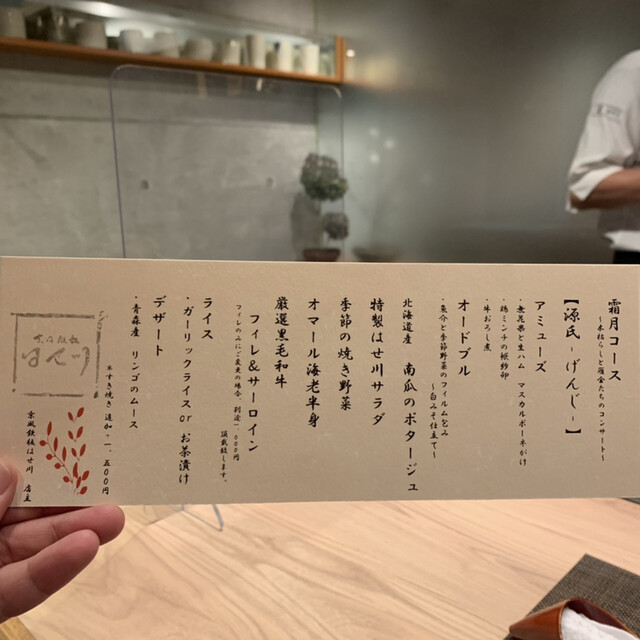 霜月コース
~木枯らしと雁金たちのコンサート~
【源氏 - げんじ - 】
アミューズ
・無花果と生ハム マスカルポーネがけ
・鶏ミンチの袱紗卵
・牛おろし煮
オードブル
・魚介と季節野菜のフィルム包み
~白みそ仕立て~
北海道産 南瓜のポタージュ
特製はせ川サラダ
季節の焼き野菜
オマール海老半身
厳選黒毛和牛
フィレ&サーロイン
フィレのみにご変更の場合、別途一、000円
頂戴致します。
ライス
・ガーリックライス or お茶漬け
デザート
・青森産 リンゴのムース
※すき焼き追加+一、五00円
京風鉄板 はせ川 店主
はせ川